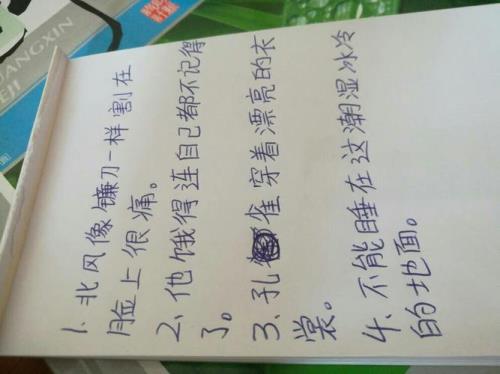 1、北风像镰刀一样割在
脸上很痛。
2、他饿得连自己都不记得
了。
3、孔雀穿着漂亮的衣
裳。
4、不能睡在这潮湿冰冷
的地面。
UANGXIN
EJI